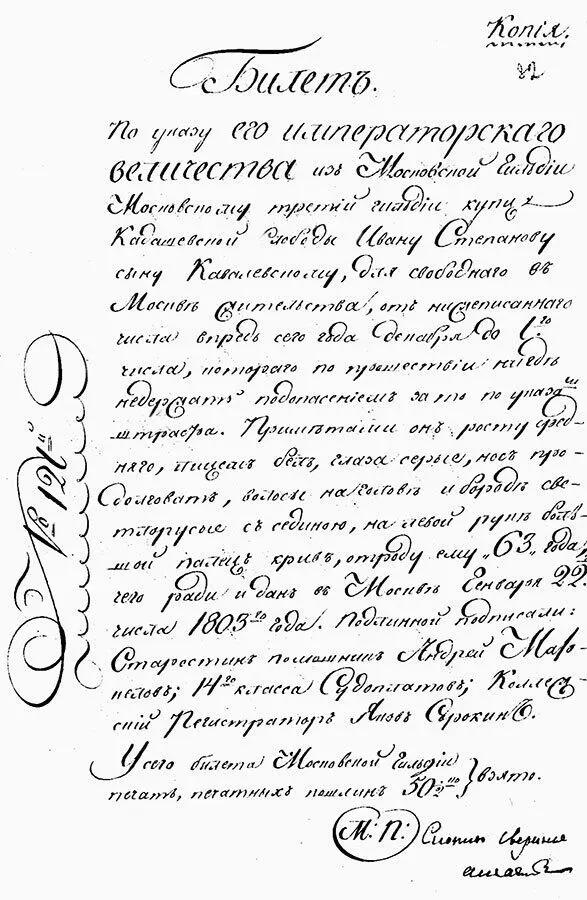 Копія.
Билетъ.
По указу его императорскаго
величества изъ Московской Гильдіи
Московскому третій гильдіи купцу
Кадашевской слободы Ивану Степанову
сыну Кавалевскому, для свободнаго въ
Москвѣ жительства, отъ нижеписаннаго
числа впредь сего года декабря до 1го
числа, котораго по прошествіи нигдѣ
недержать подопасеніемъ за то по указам
штрафа. Примѣтами онъ росту сред-
няго, лицемъ белъ, глаза серые, носъ про-
долговатъ, волосы на головѣ и бородѣ све-
тлорусые съ сединою, на левой рукѣ боль-
шой палецъ кривъ, отроду ему „63„ года,
чего ради и данъ въ Москвѣ Генваря 22
числа 1803го года. Подлинной подписали:
Старостинъ помошникъ Андрей
14го класса Судоплатовъ; Коллеж-
скій Регистраторъ Яковъ Сорокинъ.
У сего билета Московской Гильдіи
печать, печатныхъ пошлинъ 50 взято.
М: П:
№ 121й